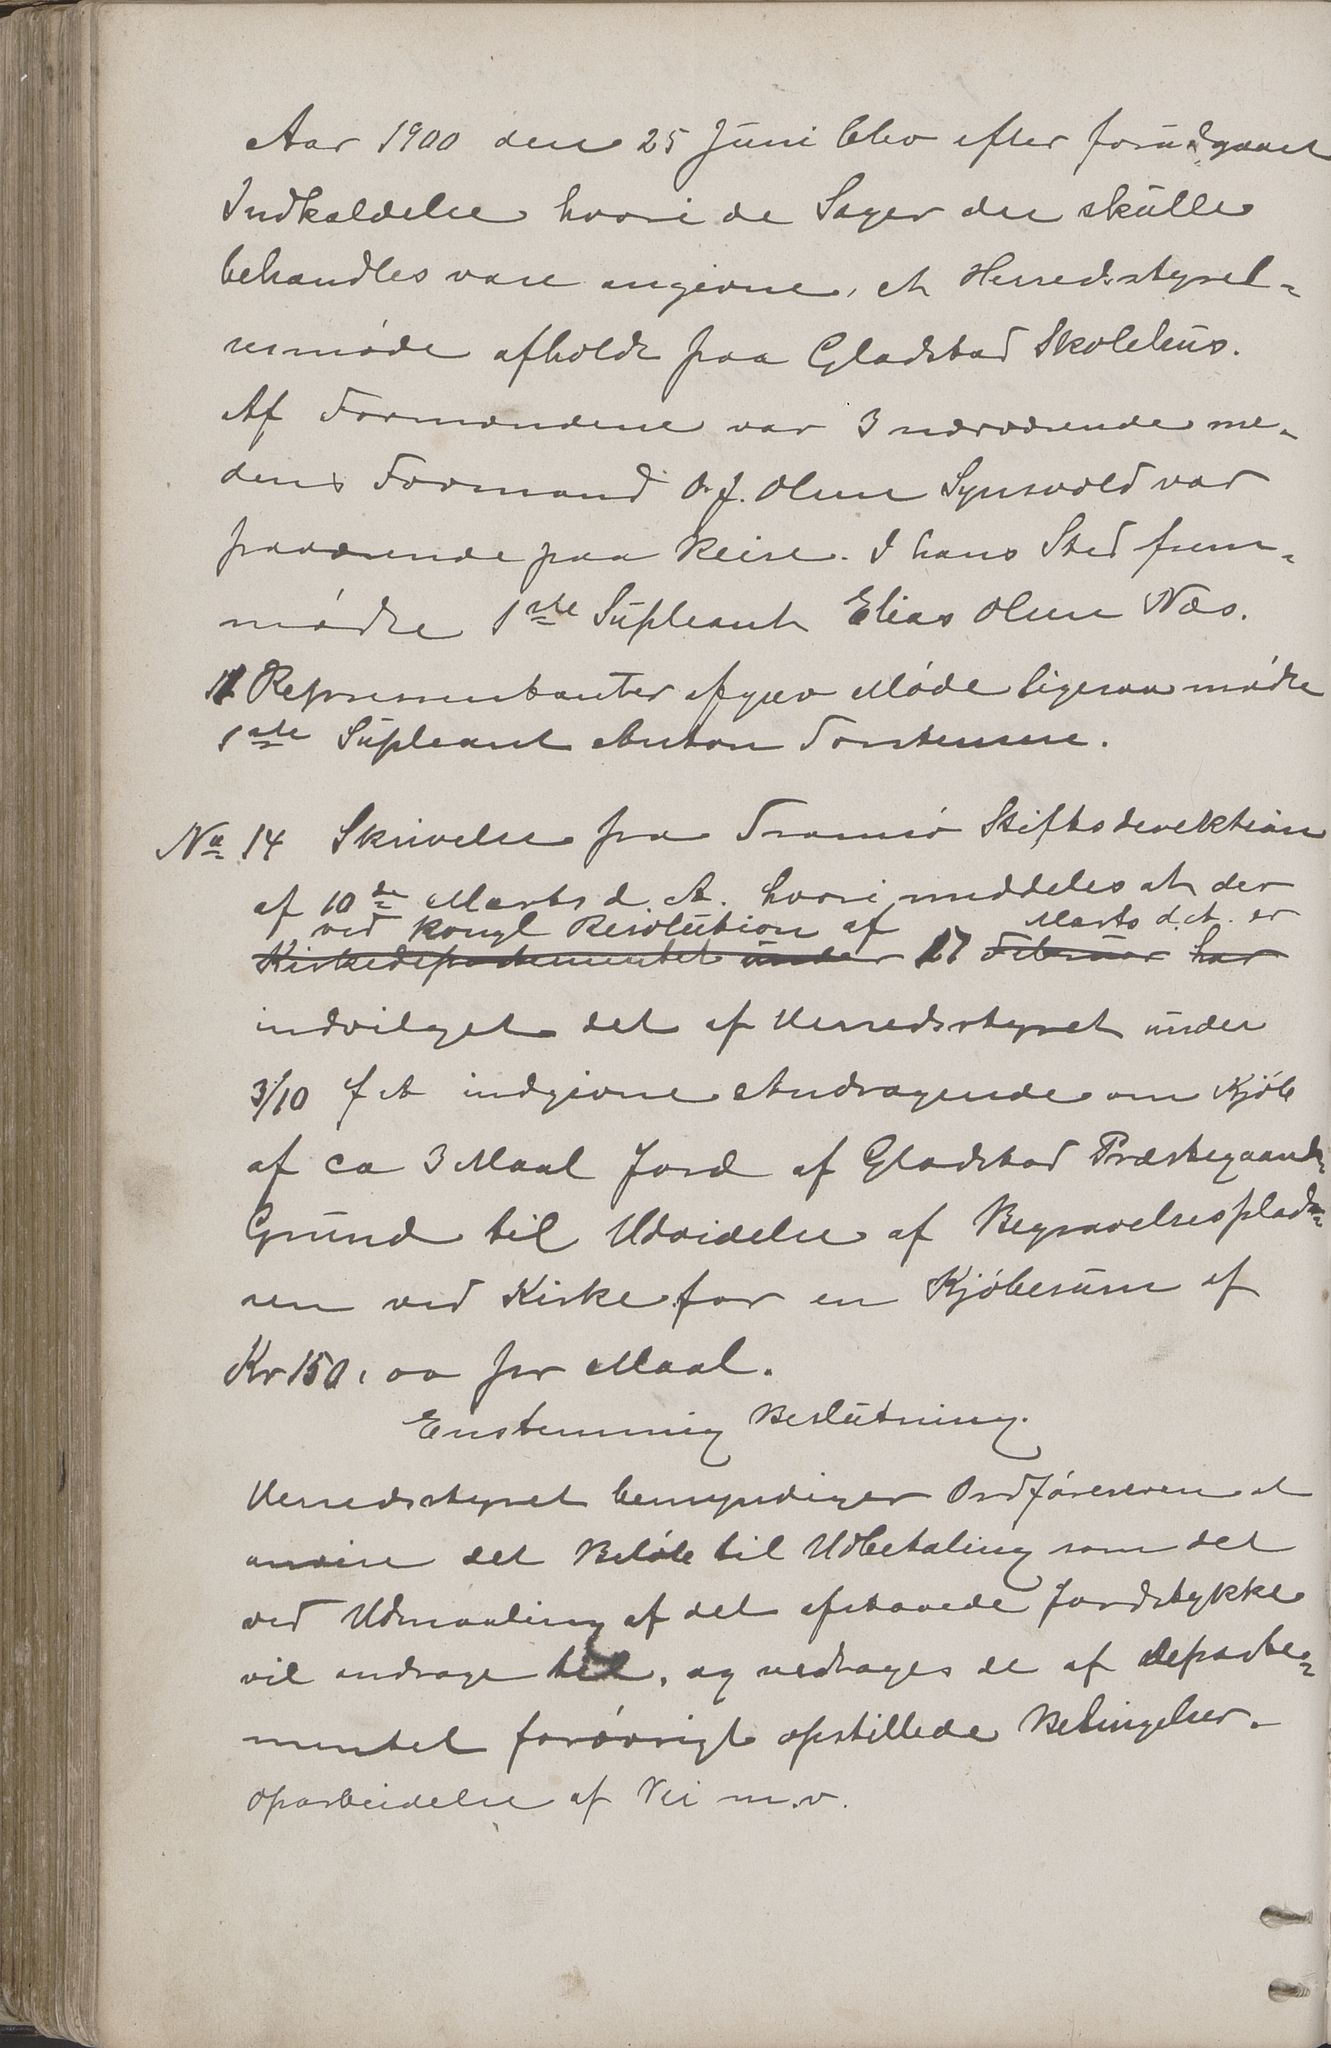 Aar 1900 den 25 Juni blev efter forudgaaet
Indkaldelse hvori de Sager der skulle
behandles vare angivne, et Herredsstyrel-
sesmøde afholdt paa Gladstad Skolehus.
Af Formændene var 3 nærværende me-
dens Formand O. J. Olsen Synsvold var
fraværende paa Reise. I hans Sted frem-
mødte 1ste Supleant Elias Olsen Næs.
11 Representanter afgav Møde ligesaa mødte
1ste Supleant Anton Torstensen.
No 14 Skrivelse fra Tromsø Stiftsdirektion
af 10de Marts d. A. hvori meddeles at der
ved kongl Resolution af Marts d. A. er
Kirkedepartementet under 17 Februar har
indvilget det af Herredsstyret under
3/10 f A indgivne Andragende om Kjøb
af ca 3 Maal Jord af Gladstad Præstegaards
Grund til Udvidelse af Begravelsesplad-
sen ved Kirke for en Kjøbesum af
Kr 150,00 pr Maal.
Enstemmig Beslutning.
Herredsstyret bemyndiger Ordføreren at
anvise det Beløb til Udbetaling som det
ved Udmaaling af det afstaaede Jordstykke
vil andrage til, og vedtages de af Departe-
mentet forøvrigt opstillede Betingelser.
Oparbeidelse af Vei m.v.